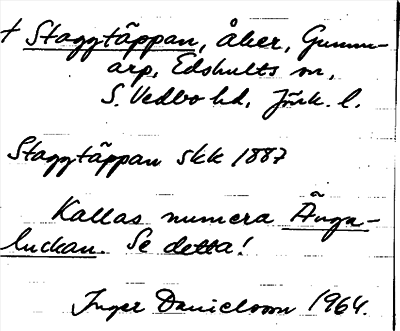 † Staggtäppan, åker, Gumm-
arp, Edshults sn,
S. Vedbo hd, Jönk. l.
Staggtäppan skk 1887
Kallas numera Änga-
luckan. Se detta!
Inger Danielsson 1964.